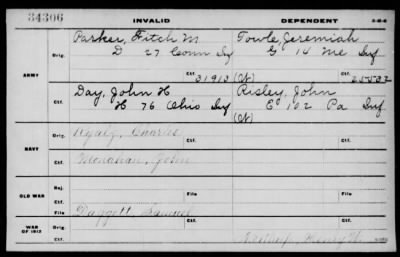 34306 INVALID DEPENDENT
Parker, Fitch M. Towle, Jeremiah
Orig. D 27 Conn Inf G 14 Me Inf
ARMY Ctf. 31913 (W) Ctf. 
Day, John H Risley, John
Ctf. H 76 Ohio Inf E 102 Pa Inf
(W)
Orig. Charles
NAVY Monahan, John
Ctf. Ctf.
Rej.
OLD WAR Ctf. File
File Daggett, Samuel
WAR OF 1812 Ctf. Ctf.
Henry